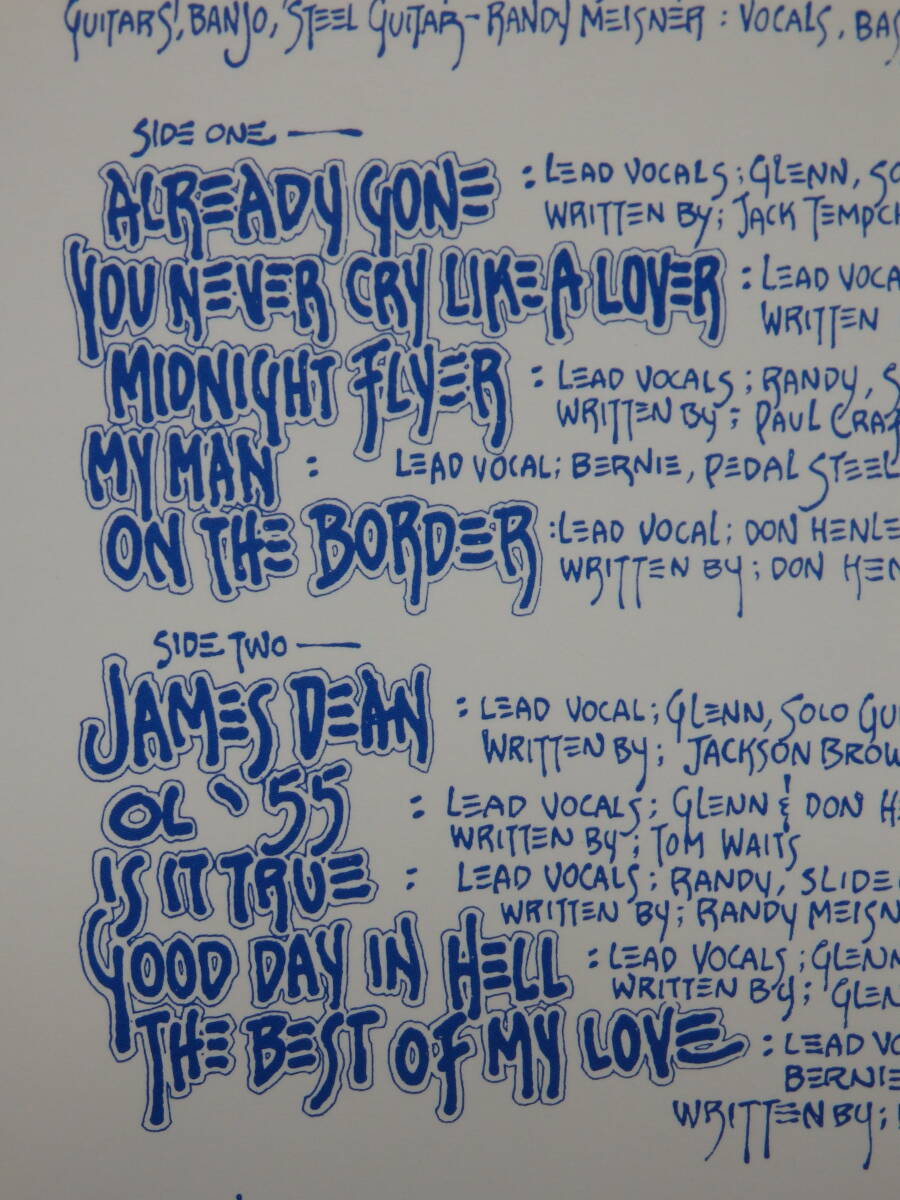 GUITARS, BANJO, STEEL GUITAR - RANDY MEISNER : VOCALS, BAS
SIDE ONE —
ALREADY GONE : LEAD VOCALS; GLENN, SO
WRITTEN BY; JACK TEMPCH
YOU NEVER CRY LIKE A LOVER : LEAD VOCA
WRITTEN
MIDNIGHT FLYER : LEAD VOCALS; RANDY, S
WRITTEN BY; PAUL CRAF
MY MAN : LEAD VOCAL; BERNIE, PEDAL STEEL
ON THE BORDER : LEAD VOCAL; DON HENLE
WRITTEN BY; DON HEN
SIDE TWO —
JAMES DEAN : LEAD VOCAL; GLENN, SOLO GUI
WRITTEN BY; JACKSON BROW
OL '55 : LEAD VOCALS; GLENN & DON HE
WRITTEN BY; TOM WAITS
IS IT TRUE : LEAD VOCALS; RANDY, SLIDE
WRITTEN BY; RANDY MEISN
GOOD DAY IN HELL : LEAD VOCALS; GLENN
WRITTEN BY; GLEN
THE BEST OF MY LOVE : LEAD VO
BERNIE
WRITTEN BY;